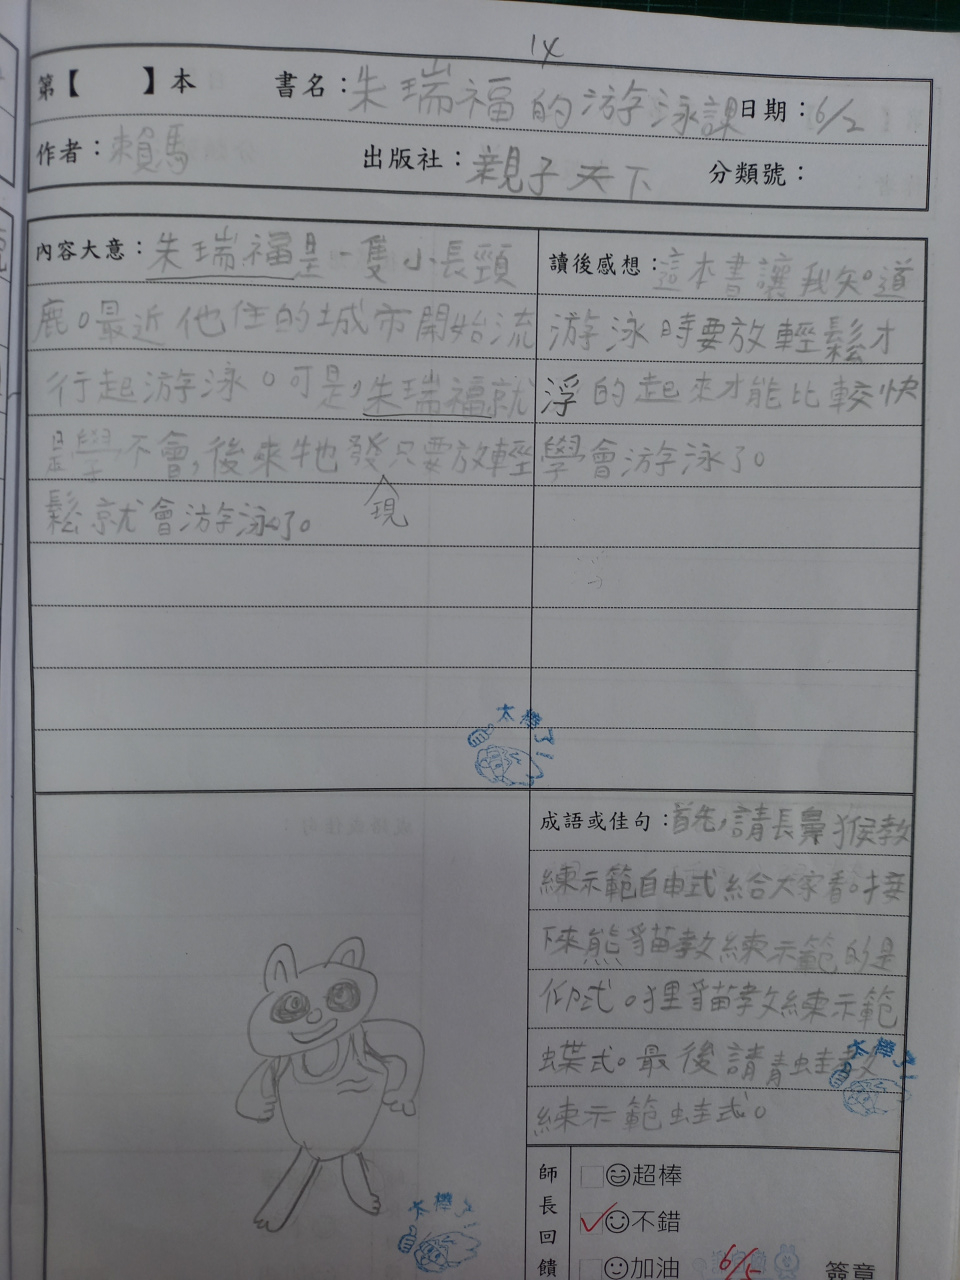 14
第【 】本 書名：朱瑞福的游泳課 日期：6/2
作者：賴馬 出版社：親子天下 分類號：
內容大意：朱瑞福是一隻小長頸
鹿。最近他住的城市開始流
行起游泳。可是，朱瑞福就
是學不會，後來牠發現只要放輕
鬆就會游泳了。
讀後感想：這本書讓我知道
游泳時要放輕鬆才
浮的起來才能比較快
學會游泳了。
太棒了！
成語或佳句：首先，請長鼻猴教
練示範自由式給大家看。接
下來熊貓教練示範的是
仰式。狸貓教練示範
蝶式。最後請青蛙教
練示範蛙式。
太棒了！
太棒了！
師長回饋
超棒
✓不錯
加油
6/5
簽章